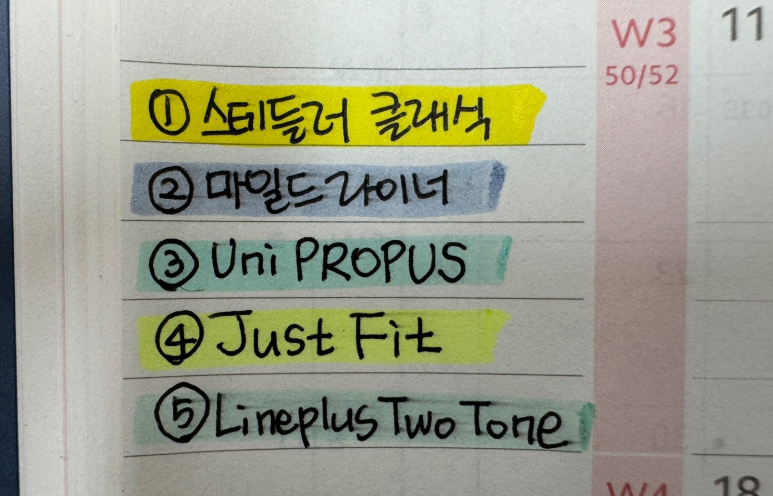 W3 11
50/52
① 스테들러 클래식
② 마일드라이너
③ Uni PROPUS
④ Just Fit
⑤ Lineplus Two Tone
W4 18